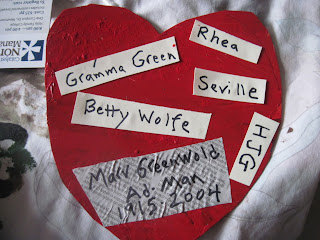 Rhea
Gramma Green
Seville
Betty Wolfe
HJG
Greenwold
Ad. Man
2004
NOR
Mana